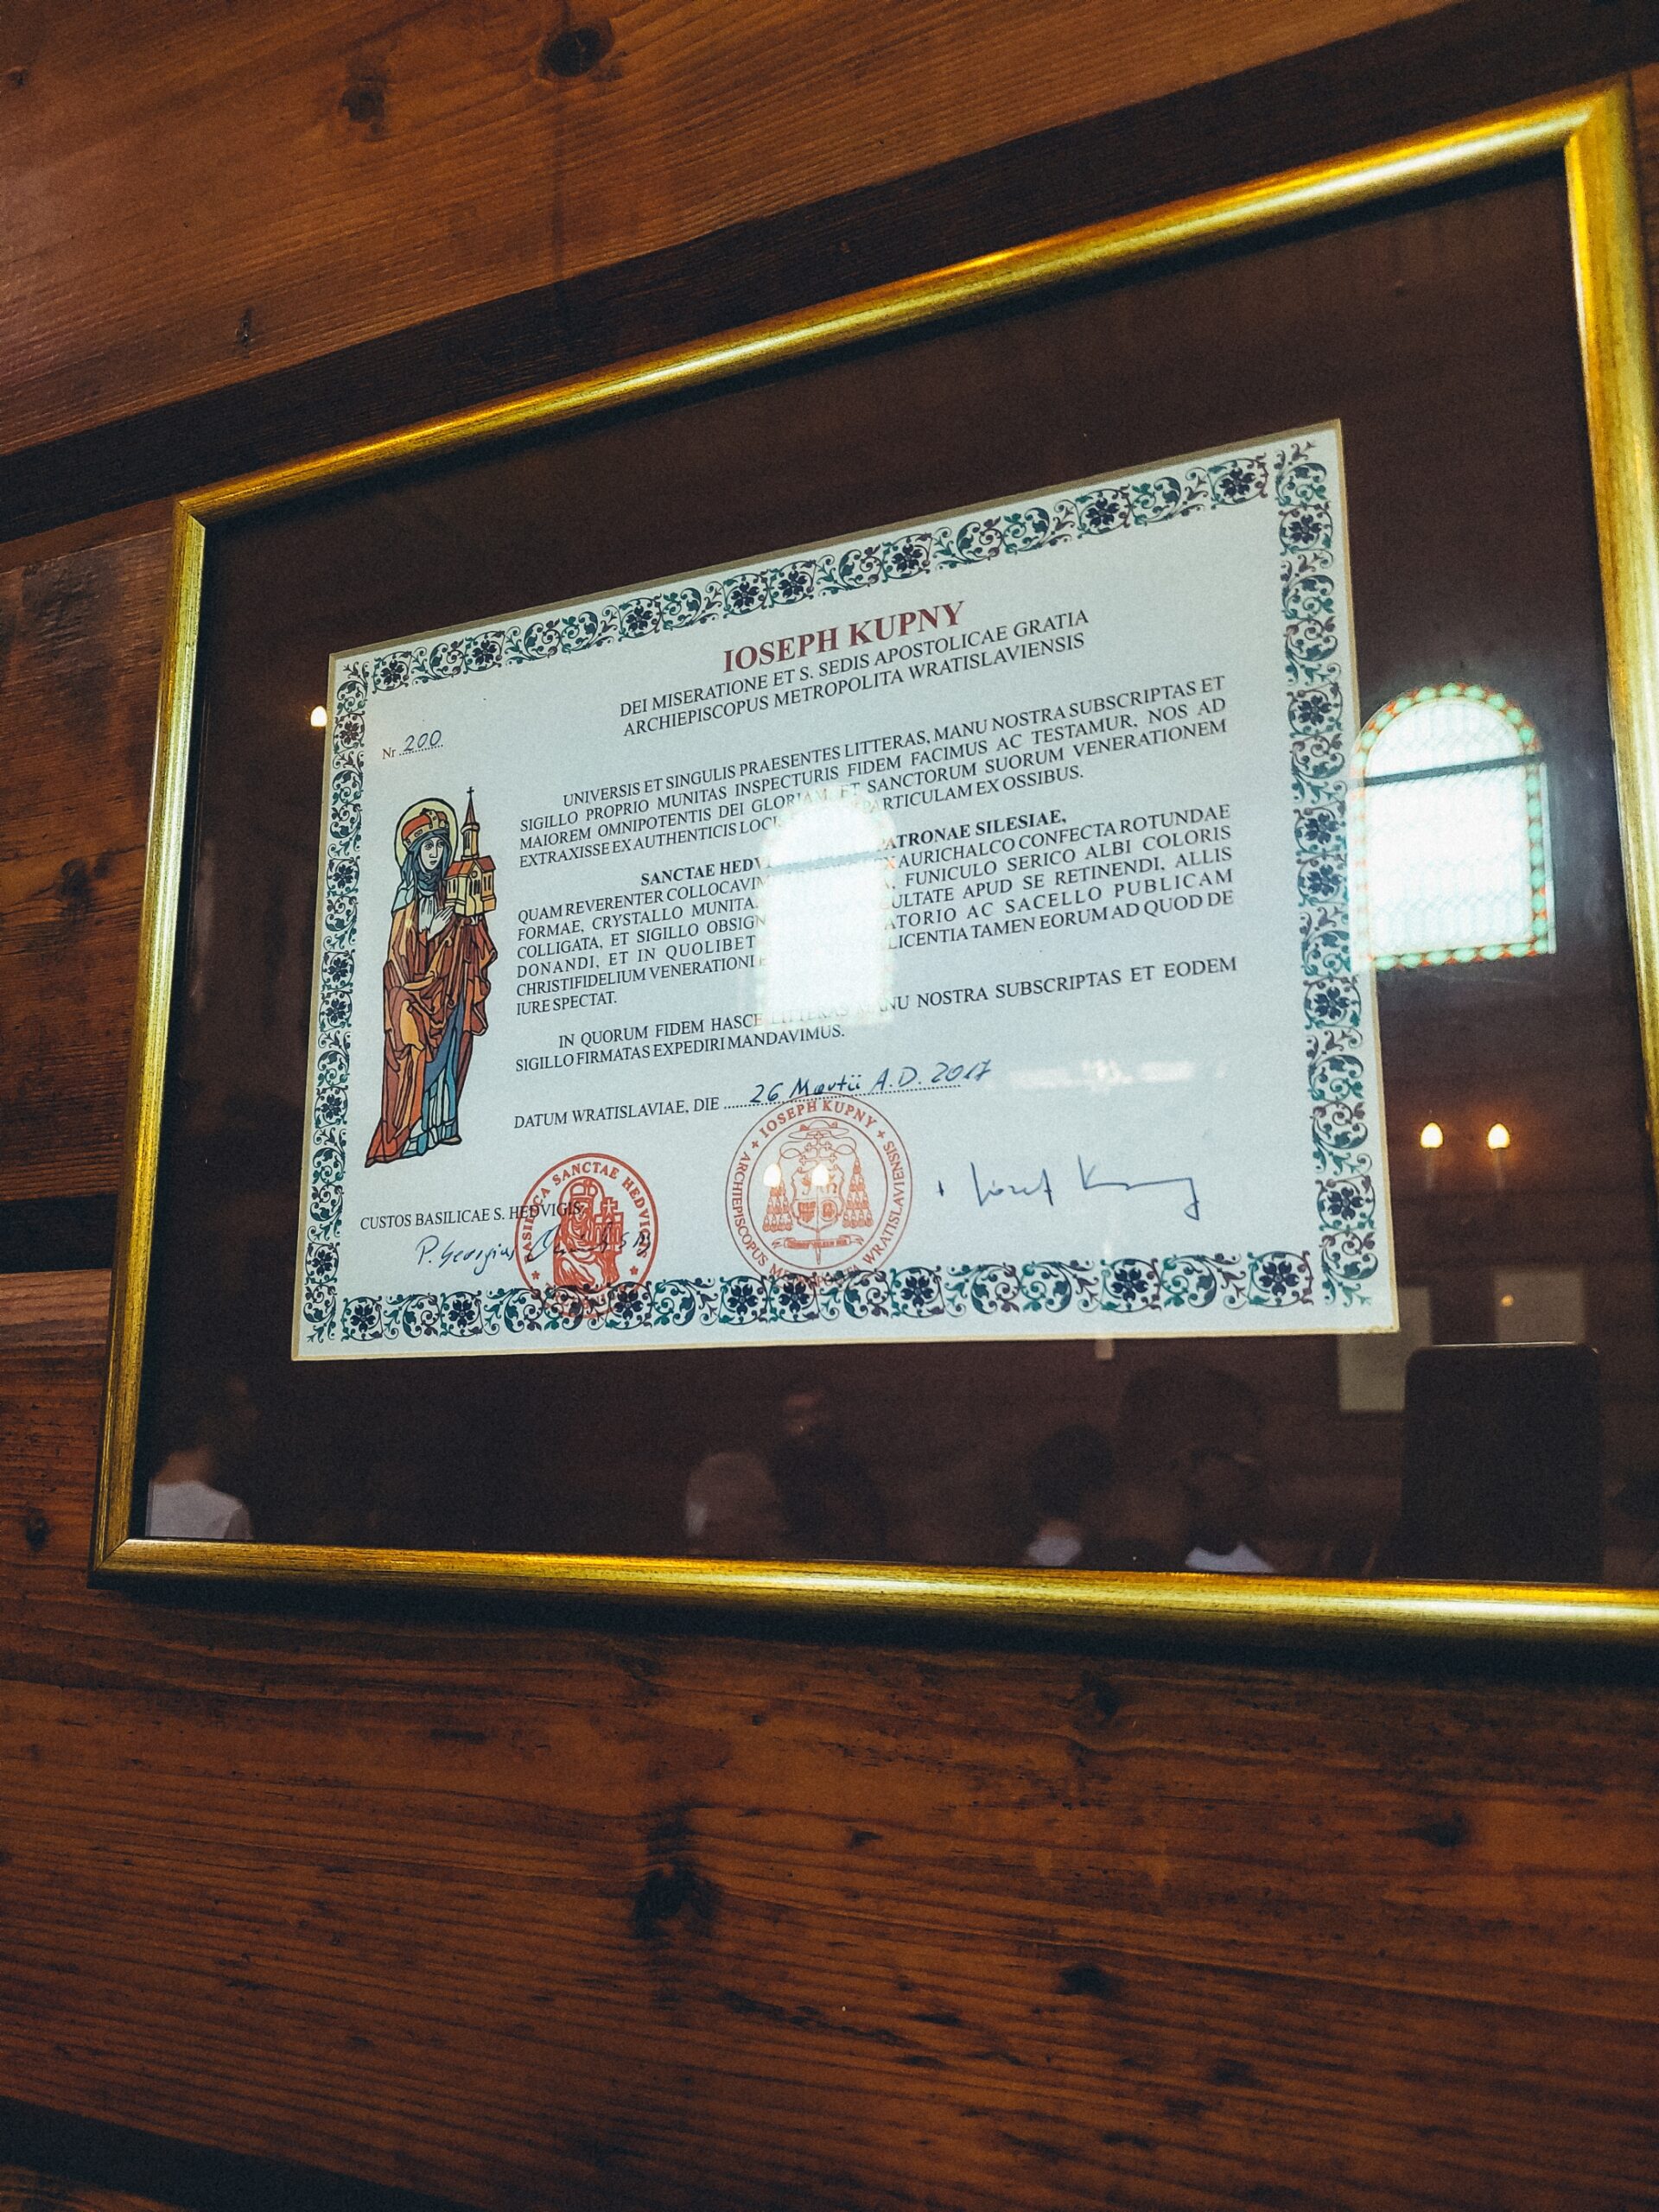 IOSEPH KUPNY
DEI MISERATIONE ET S. SEDIS APOSTOLICAE GRATIA
ARCHIEPISCOPUS METROPOLITA WRATISLAVIENSIS
Nr 200
UNIVERSIS ET SINGULIS PRAESENTES LITTERAS, MANU NOSTRA SUBSCRIPTAS ET
SIGILLO PROPRIO MUNITAS INSPECTURIS FIDEM FACIMUS AC TESTAMUR, NOS AD
MAIOREM OMNIPOTENTIS DEI GLORIAM ET SANCTORUM SUORUM VENERATIONEM
EXTRAXISSE EX AUTHENTICIS PARTICULAM EX OSSIBUS.
SANCTAE PATRONAE SILESIAE,
QUAM REVERENTER AURICHALCO CONFECTA ROTUNDAE
FORMAE, CRYSTALLO FUNICULO SERICO ALBI COLORIS
COLLIGATA, ET SIGILLO APUD SE RETINENDI, ALLIS
DONANDI, ET IN QUOLIBET AC SACELLO PUBLICAM
CHRISTIFIDELIUM VENERATIONI LICENTIA TAMEN EORUM AD QUOD DE
IURE SPECTAT.
IN QUORUM FIDEM HASCE LITTERAS MANU NOSTRA SUBSCRIPTAS ET EODEM
SIGILLO FIRMATAS EXPEDIRI MANDAVIMUS.
DATUM WRATISLAVIAE, DIE 26 Martii A.D. 2017
CUSTOS BASILICAE S. HEDVIGIS
P. Georgius
BASILICA SANCTAE HEDVIGIS
+ IOSEPH KUPNY + ARCHIEPISCOPUS METROPOLITA WRATISLAVIENSIS
+ Józef